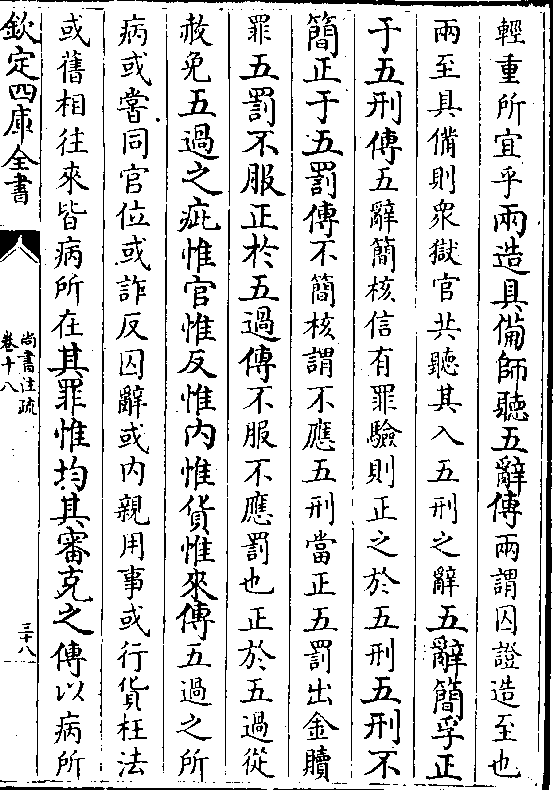 輕重所宜乎兩造具備師聽五辭傳兩謂囚證造至也
兩至具備則衆獄官共聽其入五刑之辭五辭簡孚正
于五刑傳五辭簡核信有罪驗則正之於五刑五刑不
簡正于五罰傳不簡核謂不應五刑當正五罰出金贖
罪五罰不服正於五過傳不服不應罰也正於五過從
赦免五過之疵惟官惟反惟内惟貨惟來傳五過之所
病或嘗同官位或詐反囚辭或内親用事或行貨枉法
或舊相往來皆病所在其罪惟均其審克之傳以病所
欽定四庫全書
尚書注疏
卷十八
三十八